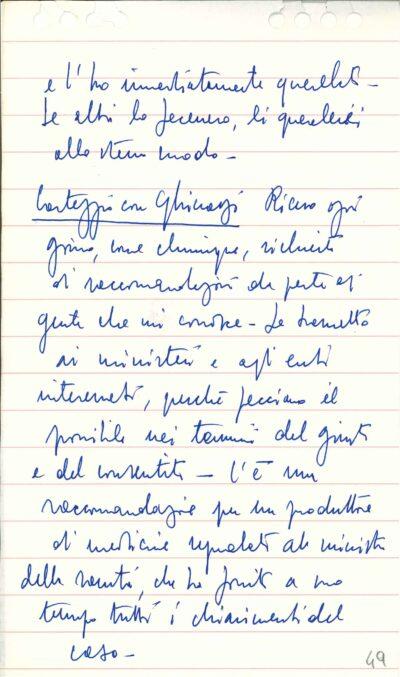 e l'ho immediatamente querelato -
Se altri lo facessero, li querelerei
allo stesso modo -
Carteggio con Ghinazzi Ricevo ogni
giorno, come chiunque, richieste
di raccomandazioni da parte di
gente che mi conosce - Le trasmetto
ai ministeri e agli enti
interessati, perché facciano il
possibile nei termini del giusto
e del consentito - C'è una
raccomandazione per un produttore
di medicine segnalato al ministro
della sanità, che ha fornito a suo
tempo tutti i chiarimenti del
caso -
49